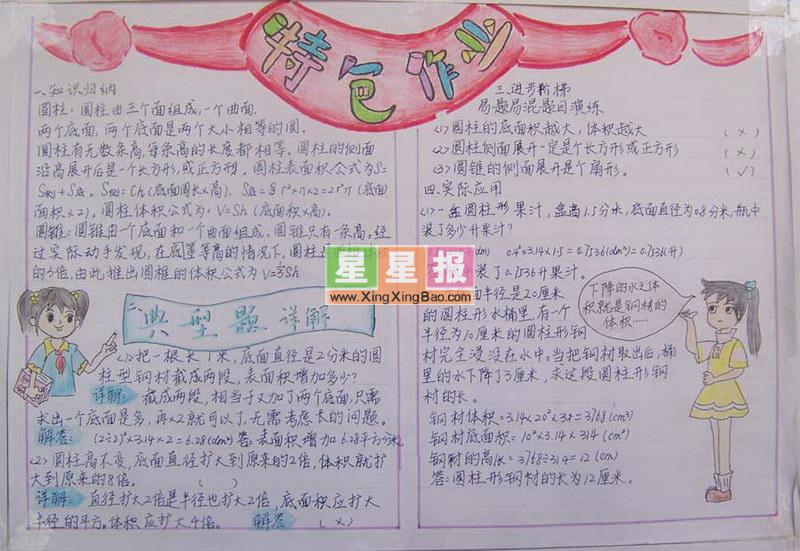 特色作业
一.知识归纳
圆柱：圆柱由三个面组成，一个曲面.
两个底面，两个底面是两个大小相等的圆.
圆柱有无数条高，每条高的长度都相等。圆柱的侧面
沿高展开后是一个长方形，或正方形。圆柱表面积公式为S=
S侧+S底。S侧=Ch(底面周长×高).
面积×2)。圆柱体积公式为：V=Sh(底面积×高).
圆锥：圆锥由一个底面和一个曲面组成，圆锥只有一条高。经
过实际动手发现，在底等高的情况下，圆柱
的3倍，由此推出圆椎的体积公式为
典型题详解
(1)把一根长1米，底面直径是2分米的圆
柱型钢材截成两段，表面积增加多少？
详解：截成两段，相当于又加了两个底面，只需
求出一个底面是多，再×2就可以了，无需考虑长的问题。
解答：(2÷2)²×3.14×2=6.28(dm²) 答：表面积增加6.28平方分米
(2)圆柱高不变，底面直径扩大到原来的2倍，体积就扩
大到原来的8倍。 ( )
详解：直径扩大2倍是半径也扩大2倍，底面积应扩大
半径的平方。体积应扩大4倍。 解答： (×)
三.进步阶梯
易题易混题目演练
(1)圆柱的底面积越大，体积越大 (×)
(2)圆柱侧面展开一定是个长方形或正方形 (×)
(3)圆锥的侧面展开是个扇形。 (√)
四.实际应用
(1)一盒圆柱形果汁，盒高1.5分米，底面直径为0.8分米，瓶中
装了多少升果汁？
0.4²×3.14×1.5=0.7536(dm³)=0.7536(升)
装了0.7536升果汁。
面半径是20厘米
的圆柱形水桶里，有一个
半径为10厘米的圆柱形钢
材完全浸没在水中，当把钢材取出后，桶
里的水下降了3厘米，求这段圆柱形钢
材的长。
钢材体积=3.14×20²×3=3768(cm³)
钢材底面积=10²×3.14=314(cm²)
钢材的高=3768÷314=12(cm)
答：圆柱形钢材的长为12厘米。
下降的水之体
积就是钢材的
体积……
星星报
www.XingXingBao.com